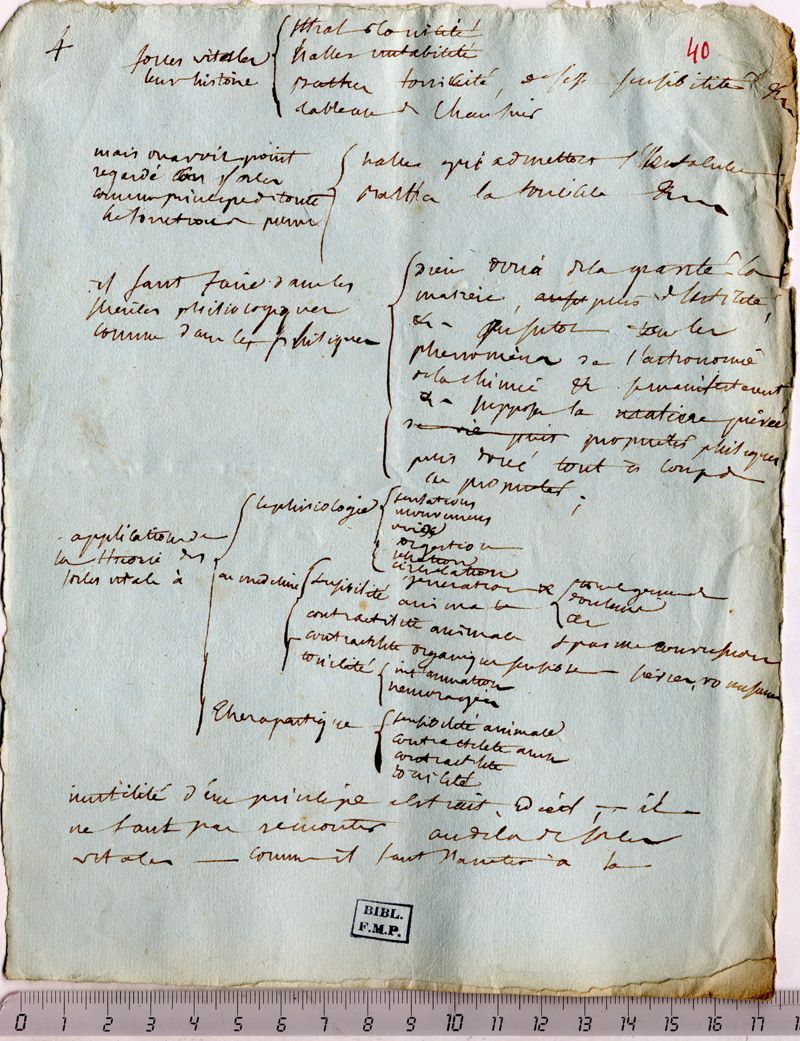 4
40
forces vitales
leur histoire
sthal tonicité
haller irritabilité
barthez tonicité, sensibilité &
tableau de Chaussier
mais on avoit point
regardé ces forces
comme principe de toute
les fonctions
haller qui admettoit
barthez la tonicité &
il faut faire dans les
phisiologiques
comme dans les phisiques
dieu doua de la gravité la
matiere, puis d'elasticité,
& tous les
phenomena de l'astronomie
de la chimie & se manifesterent
& suppose la matiere privée
de vie puis proprietés phisiques
puis doué tout à coup de
ces proprietés;
application de
la theorie des
forces vitale à
la phisiologie
sensations
mouvemens
voix
digestion
circulation
generation &
au medecine
sensibilité animale
engorgement
douleur
&c
contractilité animale spasme convulsion
contractilité organique
tonicité
inflammation
hemorragies
Therapeutique
sensibilité animale
contractilité anim
contractilité
tonicité
inutilité d'un principe abstrait, ideal, — il
ne faut pas remonter au dela de forces
vitales — comme il faut s'arreter à la
BIBL.
F.M.P.
0 1 2 3 4 5 6 7 8 9 10 11 12 13 14 15 16 17